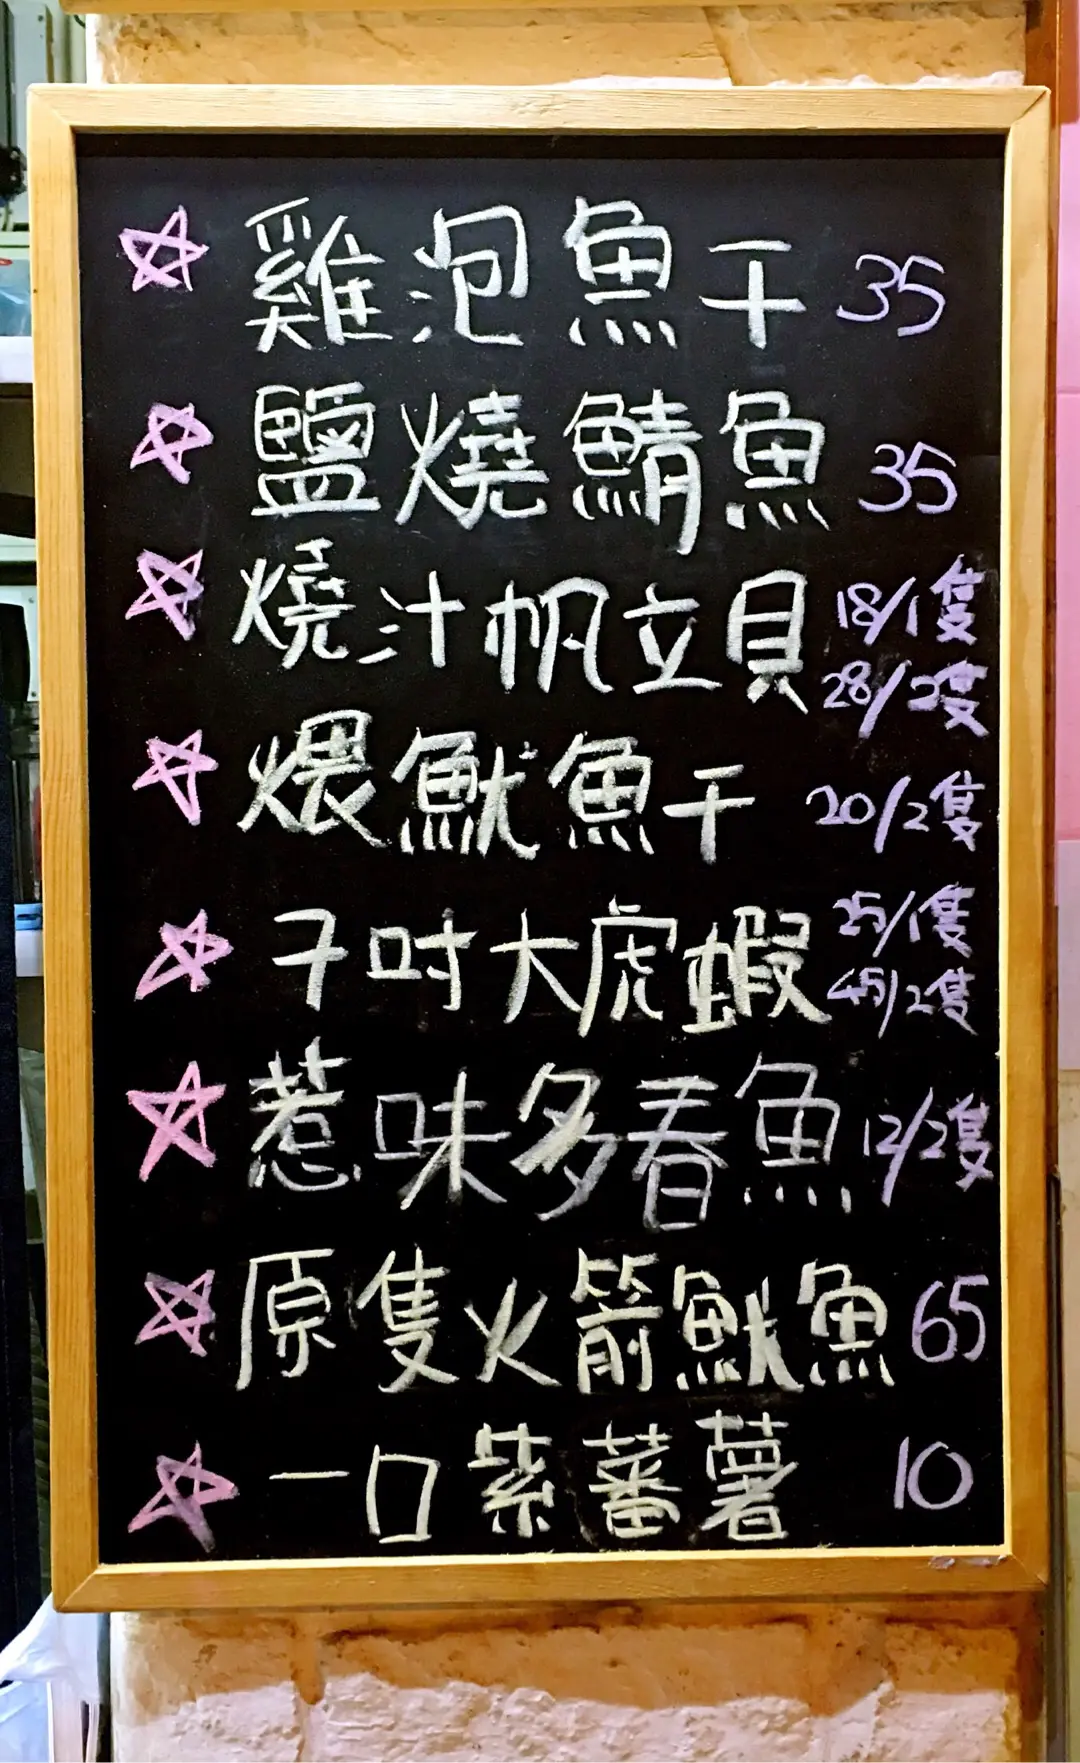 雞泡魚干 35
鹽燒鯖魚 35
燒汁帆立貝 18/1隻
28/2隻
煨魷魚干 20/2隻
7吋大虎蝦 25/1隻
45/2隻
惹味多春魚 12/2隻
原隻火箭魷魚 65
一口紫蕃薯 10